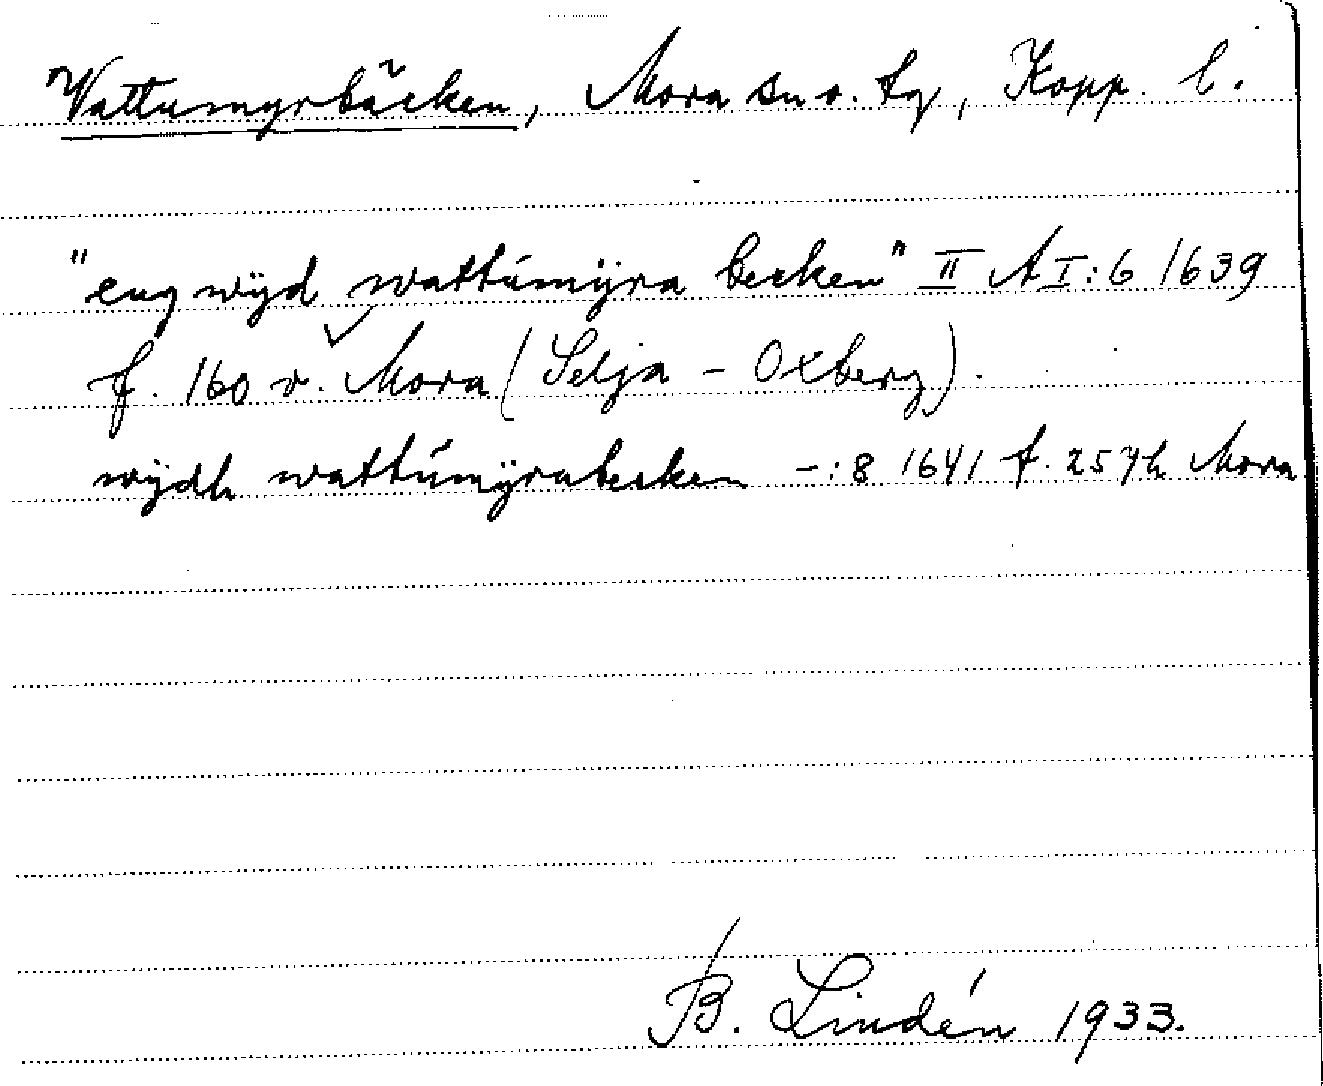 Vattumyrbäcken, Mora sn o. tg, Kopp. l.
"eng wÿd wattúmÿra becken" II A I:6 1639
f. 160 v. Mora (Selja - Oxberg).
wÿdh wattúmÿrabecken -:8 1641 f. 257 h Mora
B. Lindén 1933.